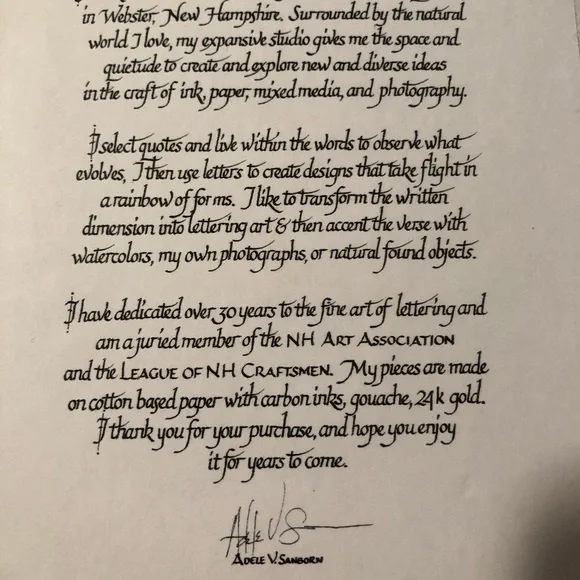 in Webster, New Hampshire. Surrounded by the natural
world I love, my expansive studio gives me the space and
quietude to create and explore new and diverse ideas
in the craft of ink, paper, mixed media, and photography.
I select quotes and live within the words to observe what
evolves, I then use letters to create designs that take flight in
a rainbow of forms. I like to transform the written
dimension into lettering art & then accent the verse with
watercolors, my own photographs, or natural found objects.
I have dedicated over 30 years to the fine art of lettering and
am a juried member of the NH ART ASSOCIATION
and the LEAGUE OF NH CRAFTSMEN. My pieces are made
on cotton based paper with carbon inks, gouache, 24k gold.
I thank you for your purchase, and hope you enjoy
it for years to come.
Adele V S
ADELE V. SANBORN